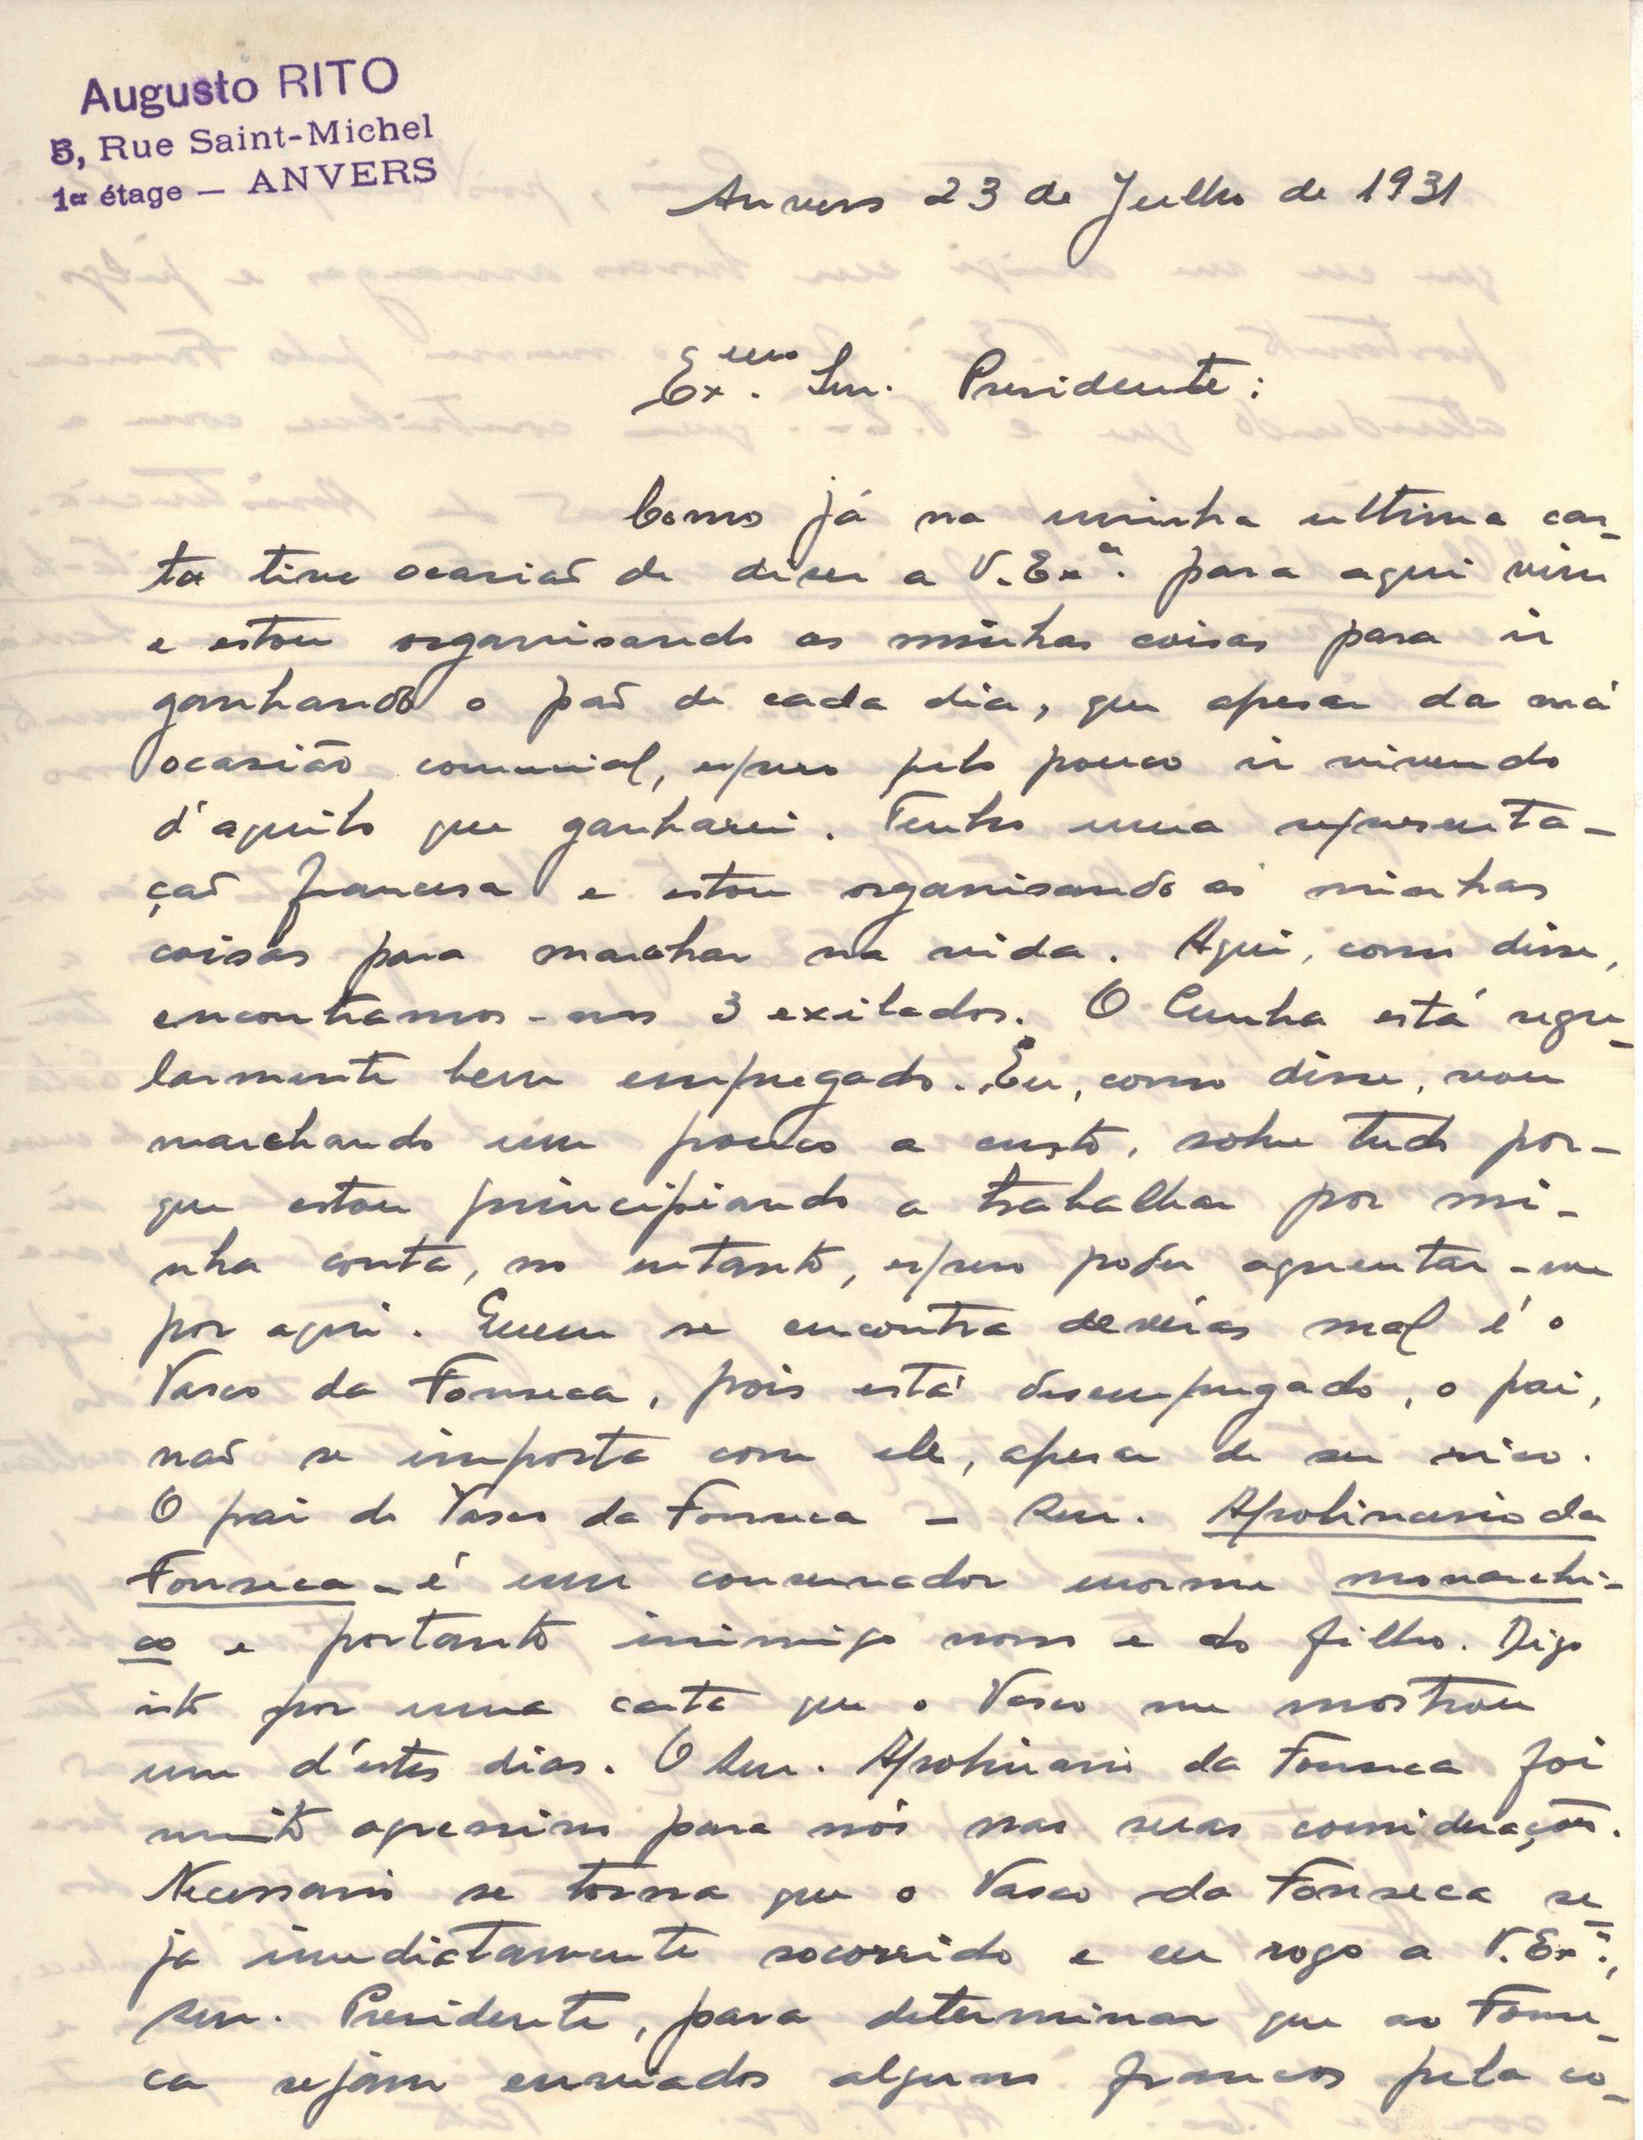 Augusto RITO
5, Rue Saint-Michel
1er étage — ANVERS
Anvers 23 de Julho de 1931
Exmo. Snr. Presidente:
Como já na minha ultima car-
ta tive ocasião de diser a V. Exª. para aqui vim
e estou organisando as minhas coisas para ir
ganhando o pão de cada dia, que apesar da má
ocasião comercial, espero pelo pouco ir vivendo
d'aquilo que ganharei. Tenho uma representa-
ção francesa e estou organisando as minhas
coisas para marchar na vida. Aqui, como disse,
encontramos-nos 3 exilados. O Cunha está regu-
larmente bem empregado. Eu, como disse, vou
marchando um pouco a custo, sobre tudo por-
que estou principiando a trabalhar por mi-
nha conta, no entanto, espero poder aguentar-me
por aqui. Quem se encontra devéras mal é o
Vasco da Fonseca, pois está desempregado, o pai,
não se importa com ele, apesar de ser rico.
O pai do Vasco da Fonseca - Snr. Apolinario da
Fonseca - é um conservador enorme monarchi-
co e portanto inimigo nosso e do filho. Digo
isto por uma carta que o Vasco me mostrou
um d'estes dias. O Snr. Apolinario da Fonseca foi
muito agressivo para nós nas suas considerações.
Necessario se torna que o Vasco da Fonseca se-
ja imediatamente socorrido e eu rogo a V. Exª.,
Snr. Presidente, para determinar que ao Fonse-
ca sejam enviados alguns francos pela co-